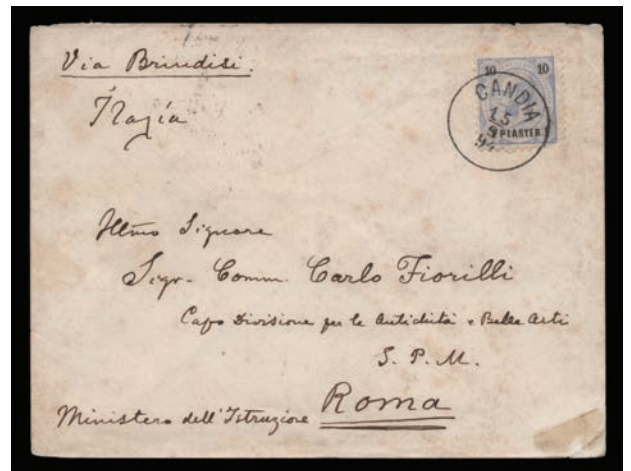 Via Brindisi.
Ἰταλία
10 10
CANDIA
15
9
94
PIASTER
Illmo Signore
Sigr. Comm. Carlo Fiorilli
Capo Divisione per le Antichità e Belle Arti
S. P. M.
Roma
Ministero dell'Istruzione